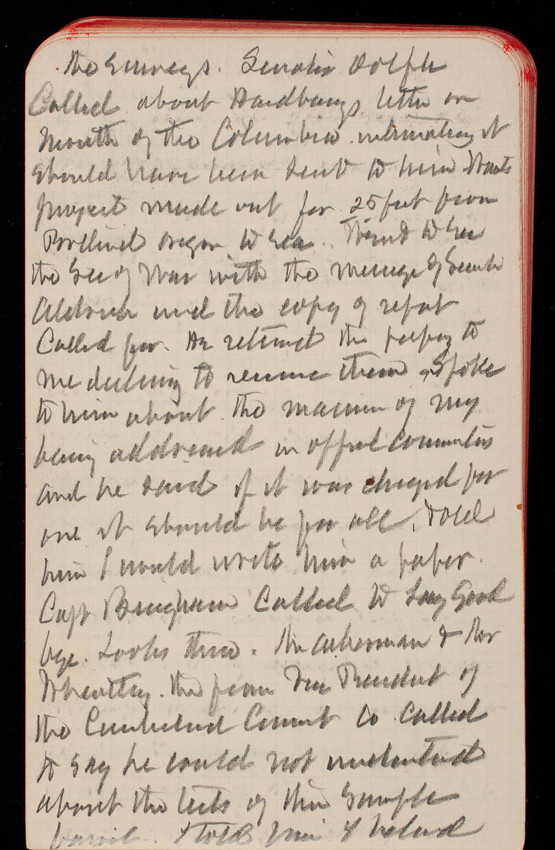 the Surveys. Senator Dolph
Called about Handburys letter on
Mouth of the Columbia intimating it
should have been sent to him Wants
project made out for 25 feet from
Portland Oregon to Sea. Went to see
the Sec of War with the message of
and the copy of report
Called for. He returned the papers to
me declining to receive them. Spoke
to him about the manner of my
being addressed in official
and he said if it was changed for
one it should be for all, I told
him I would write him a paper.
Capt Bingham Called to Say Good
bye. Looks thin. Mr Ackerman & Mr
Wheatley. the former Vice President of
the Cumberland Cement Co. called
to say he could not understand
about the tests of this Sample
barrel. I told him I